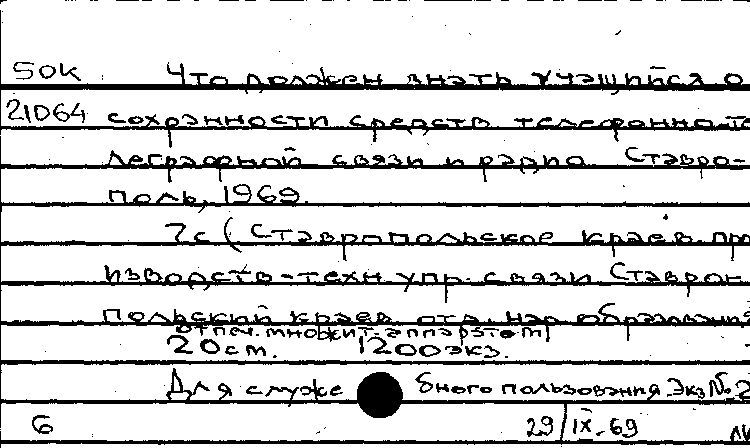 50к Что должен знать учащийся о
21064 сохранности средств телефонно-те
леграфной связи и радио. Ставро-
поль, 1969.
7с (Ставропольское краев. про
изводств-техн упр. связи Ставроп
польский краев. отд. нар образования
отпеч. множит. аппаратом)
20см. 1200экз.
Для служе бного пользования. Экз №2
6 29/IX-69